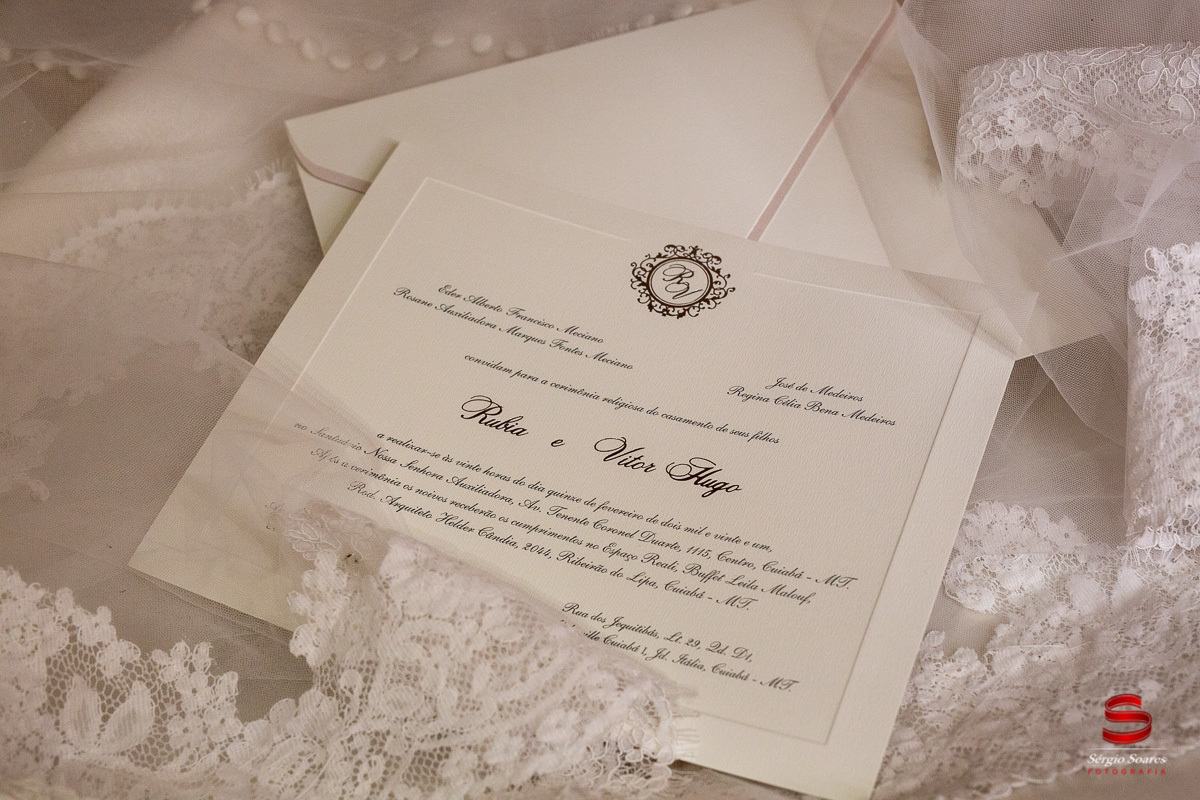 RV
Eder Alberto Francisco Meciano
Rosane Auxiliadora Marques Fontes Meciano
José de Medeiros
Regina Célia Bena Medeiros
convidam para a cerimônia religiosa do casamento de seus filhos
Rubia e Vitor Hugo
a realizar-se às vinte horas do dia quinze de fevereiro de dois mil e vinte e um,
no Santuário Nossa Senhora Auxiliadora, Av. Tenente Coronel Duarte, 1115, Centro, Cuiabá - MT.
Após a cerimônia os noivos receberão os cumprimentos no Espaço Reali, Buffet Leila Malouf,
Rod. Arquiteto Helder Cândia, 2044, Ribeirão do Lipa, Cuiabá - MT.
Rua dos Jequitibás, Lt. 29, Qd. D1,
Cuiabá I, Jd. Itália, Cuiabá - MT.
S
Sérgio Soares
FOTOGRAFIA